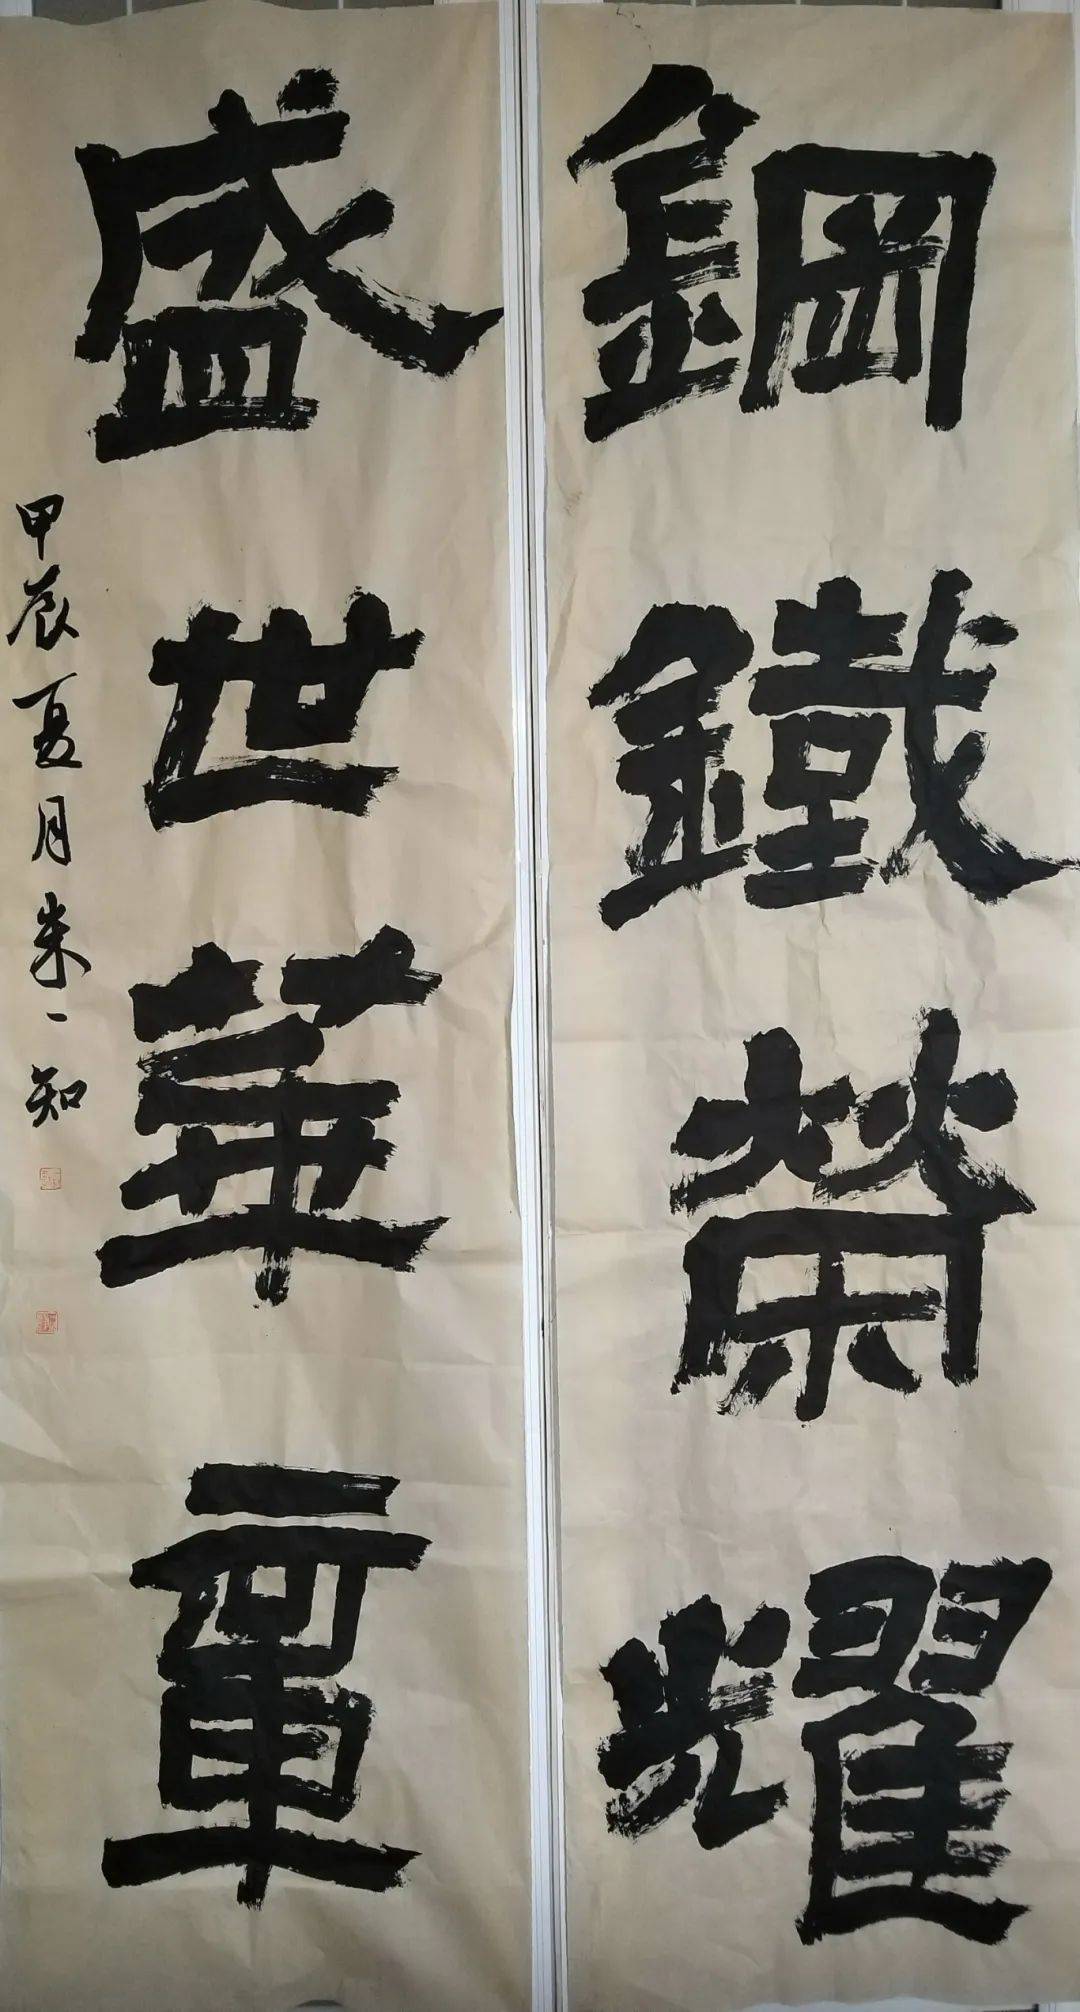 鋼鐵榮耀
盛世華章
甲辰夏月朱一知